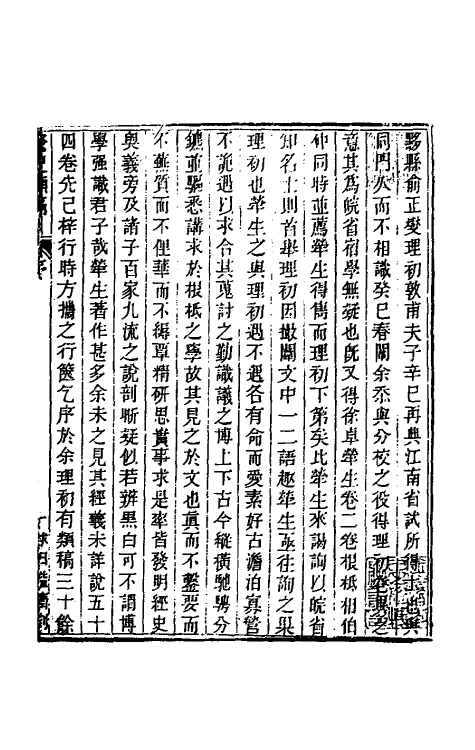 黟縣俞正燮理初敦甫夫子辛巳再典江南省試所得士也與
同門久而不相識癸巳春闈余忝與分校之役得理初卷異之
意其爲皖省宿學無疑也旣又得徐卓犖生卷二卷根柢相伯
仲同時並薦犖生得雋而理初下第矣此犖生來謁詢以皖省
知名士則首舉理初因撤闈文中一二語趣犖生亟往詢之果
理初也犖生之與理初遇不遇各有命而愛素好古澹泊寡營
不詭遇以求合其蒐討之勤識議之博上下古今縱橫馳騁分
鑣並驅悉講求於根柢之學故其見之於文也眞而不鑿要而
不蕪質而不俚華而不縟覃精研思實事求是率皆發明經史
奧義旁及諸子百家九流之說剖晰疑似若辨黑白可不謂博
學强識君子哉犖生著作甚多余未之見其經義未詳說五十
四卷先已梓行時方攜之行篋乞序於余理初有類稿三十餘